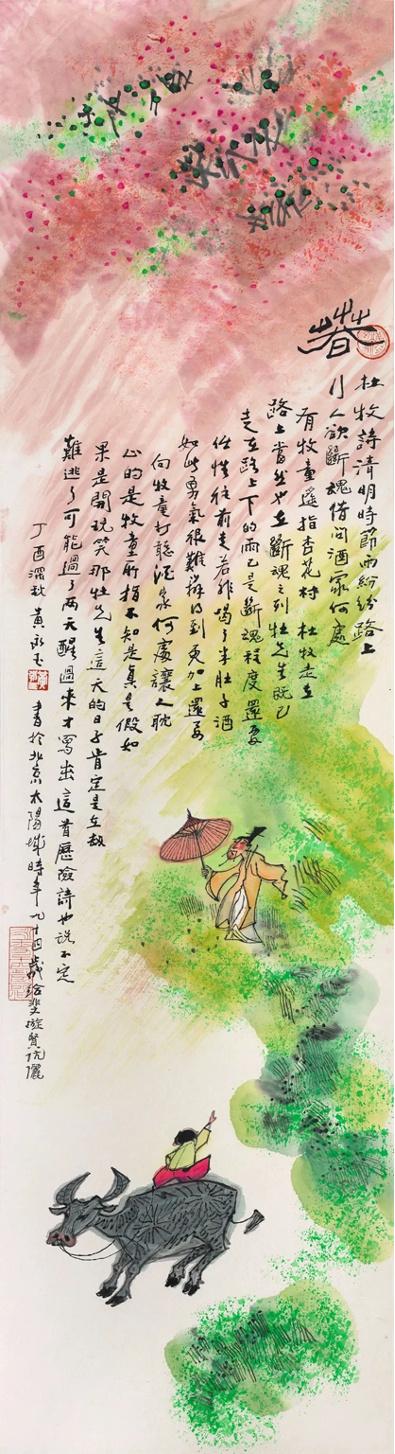 春
杜牧詩清明時節雨紛紛路上
行人欲斷魂借問酒家何處
有牧童遥指杏花村 杜牧走在
路上當然也在斷魂之列杜先生既已
走在路上下的雨已是斷魂程度還要
任性往前走若非喝了半肚子酒
如此勇氣很難辦得到更加上還要
向牧童打聽酒家何處讓人耽
心的是牧童所指不知是真是假如
果是開玩笑那杜先生這一天的日子肯定是在劫
難逃了可能過了两天醒過來才寫出這首歷險詩也説不定
丁酉深秋 黄永玉 書於北京太陽城時年九十四歲 賢伉儷